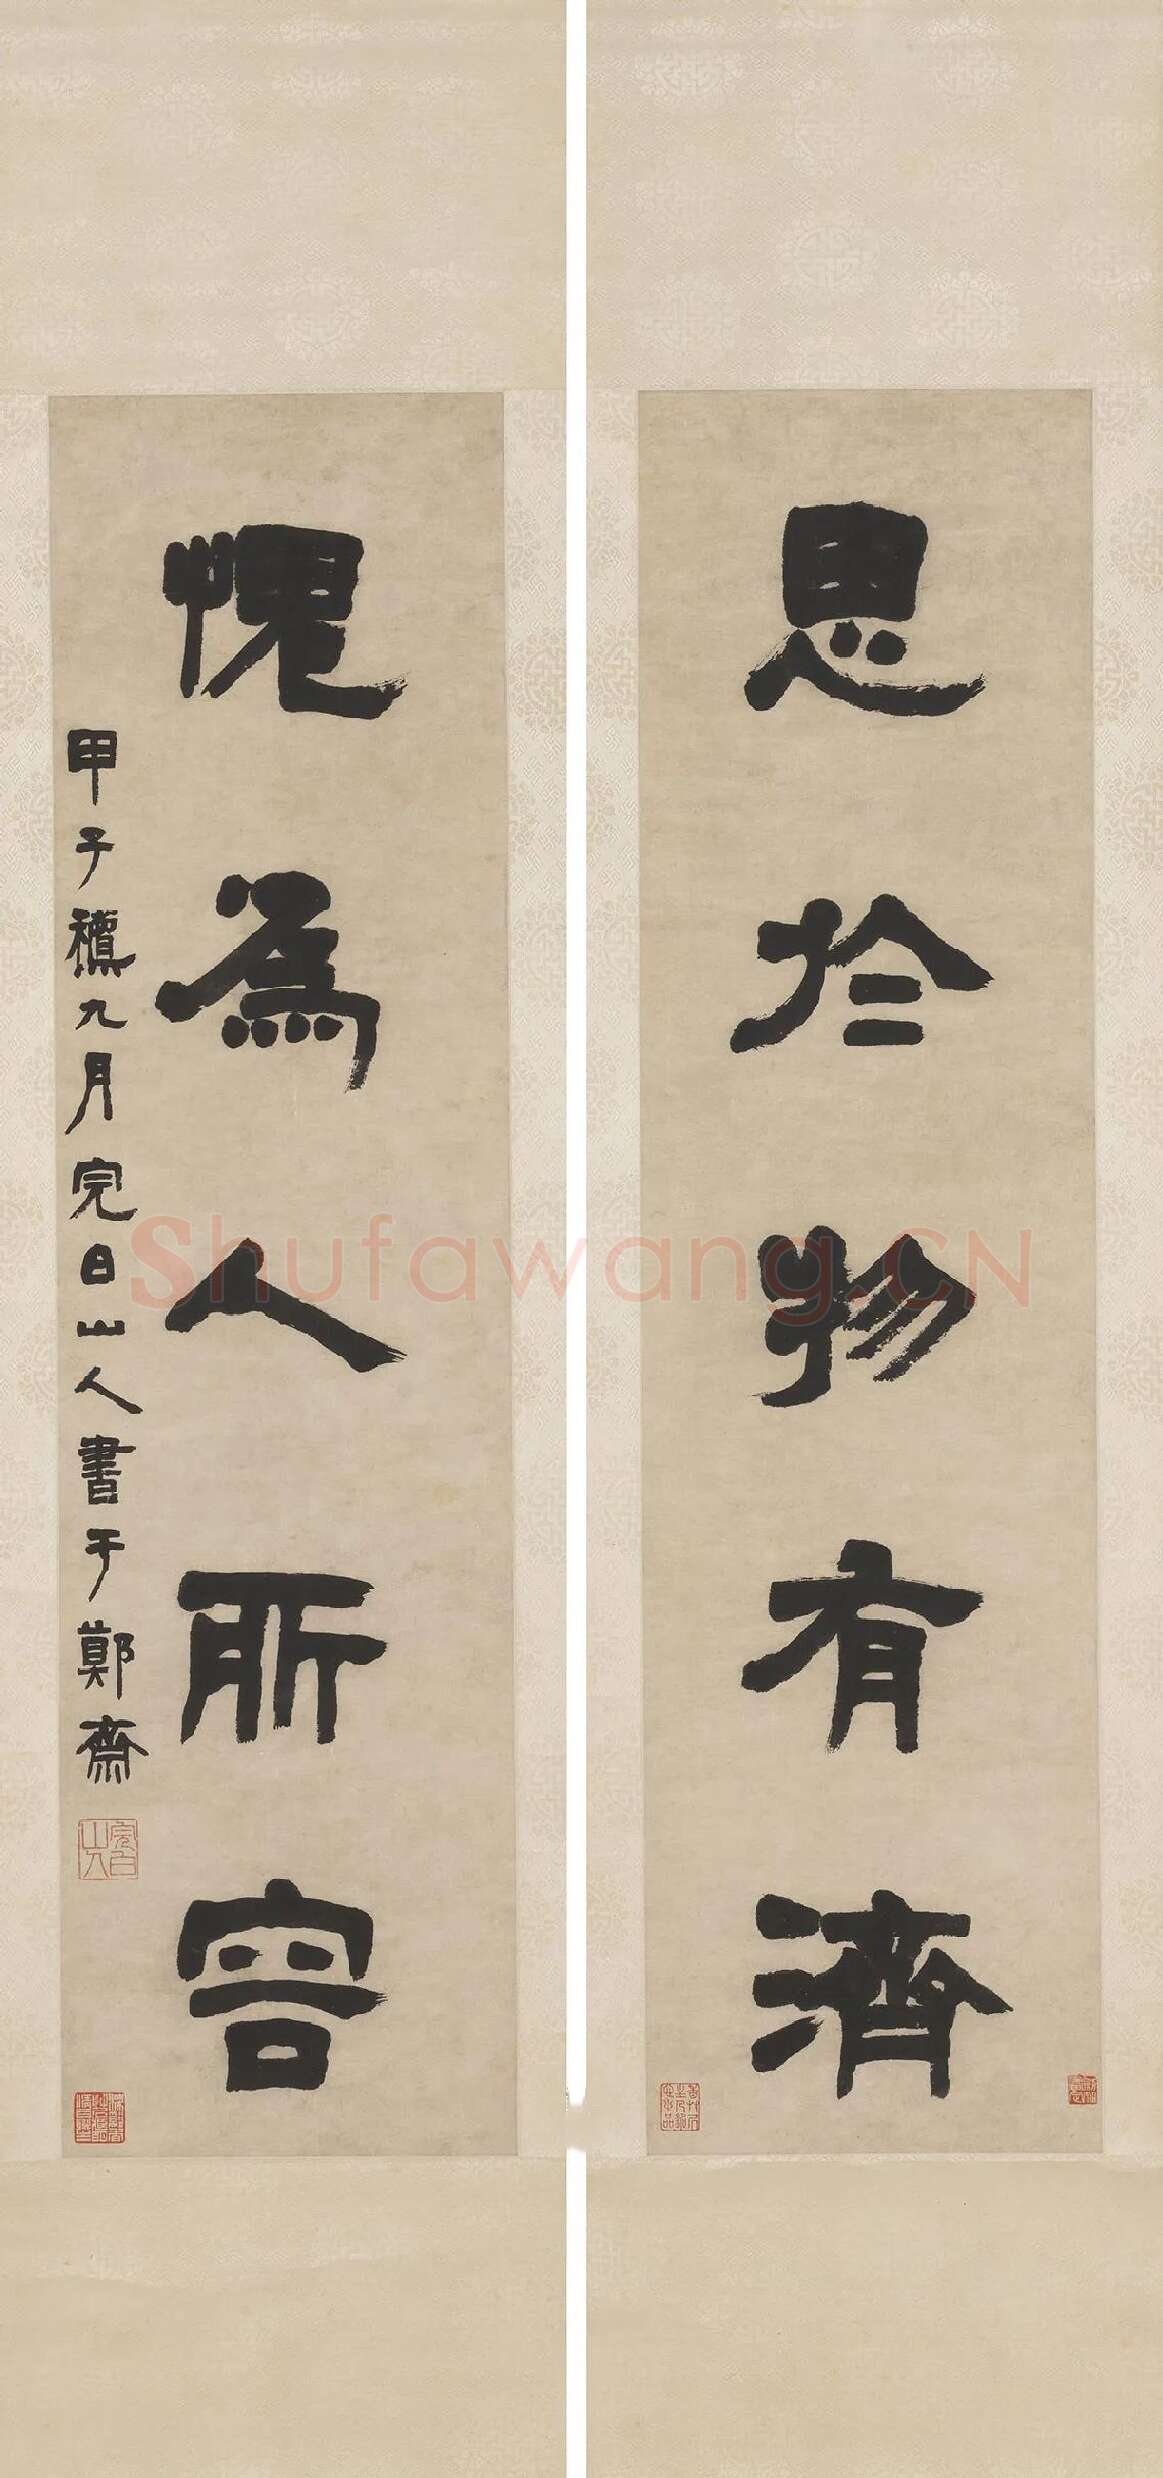 思於物有濟
愧為人所容
甲子穐九月完白山人書于鄭齋
完白山人
Shufawang.CN